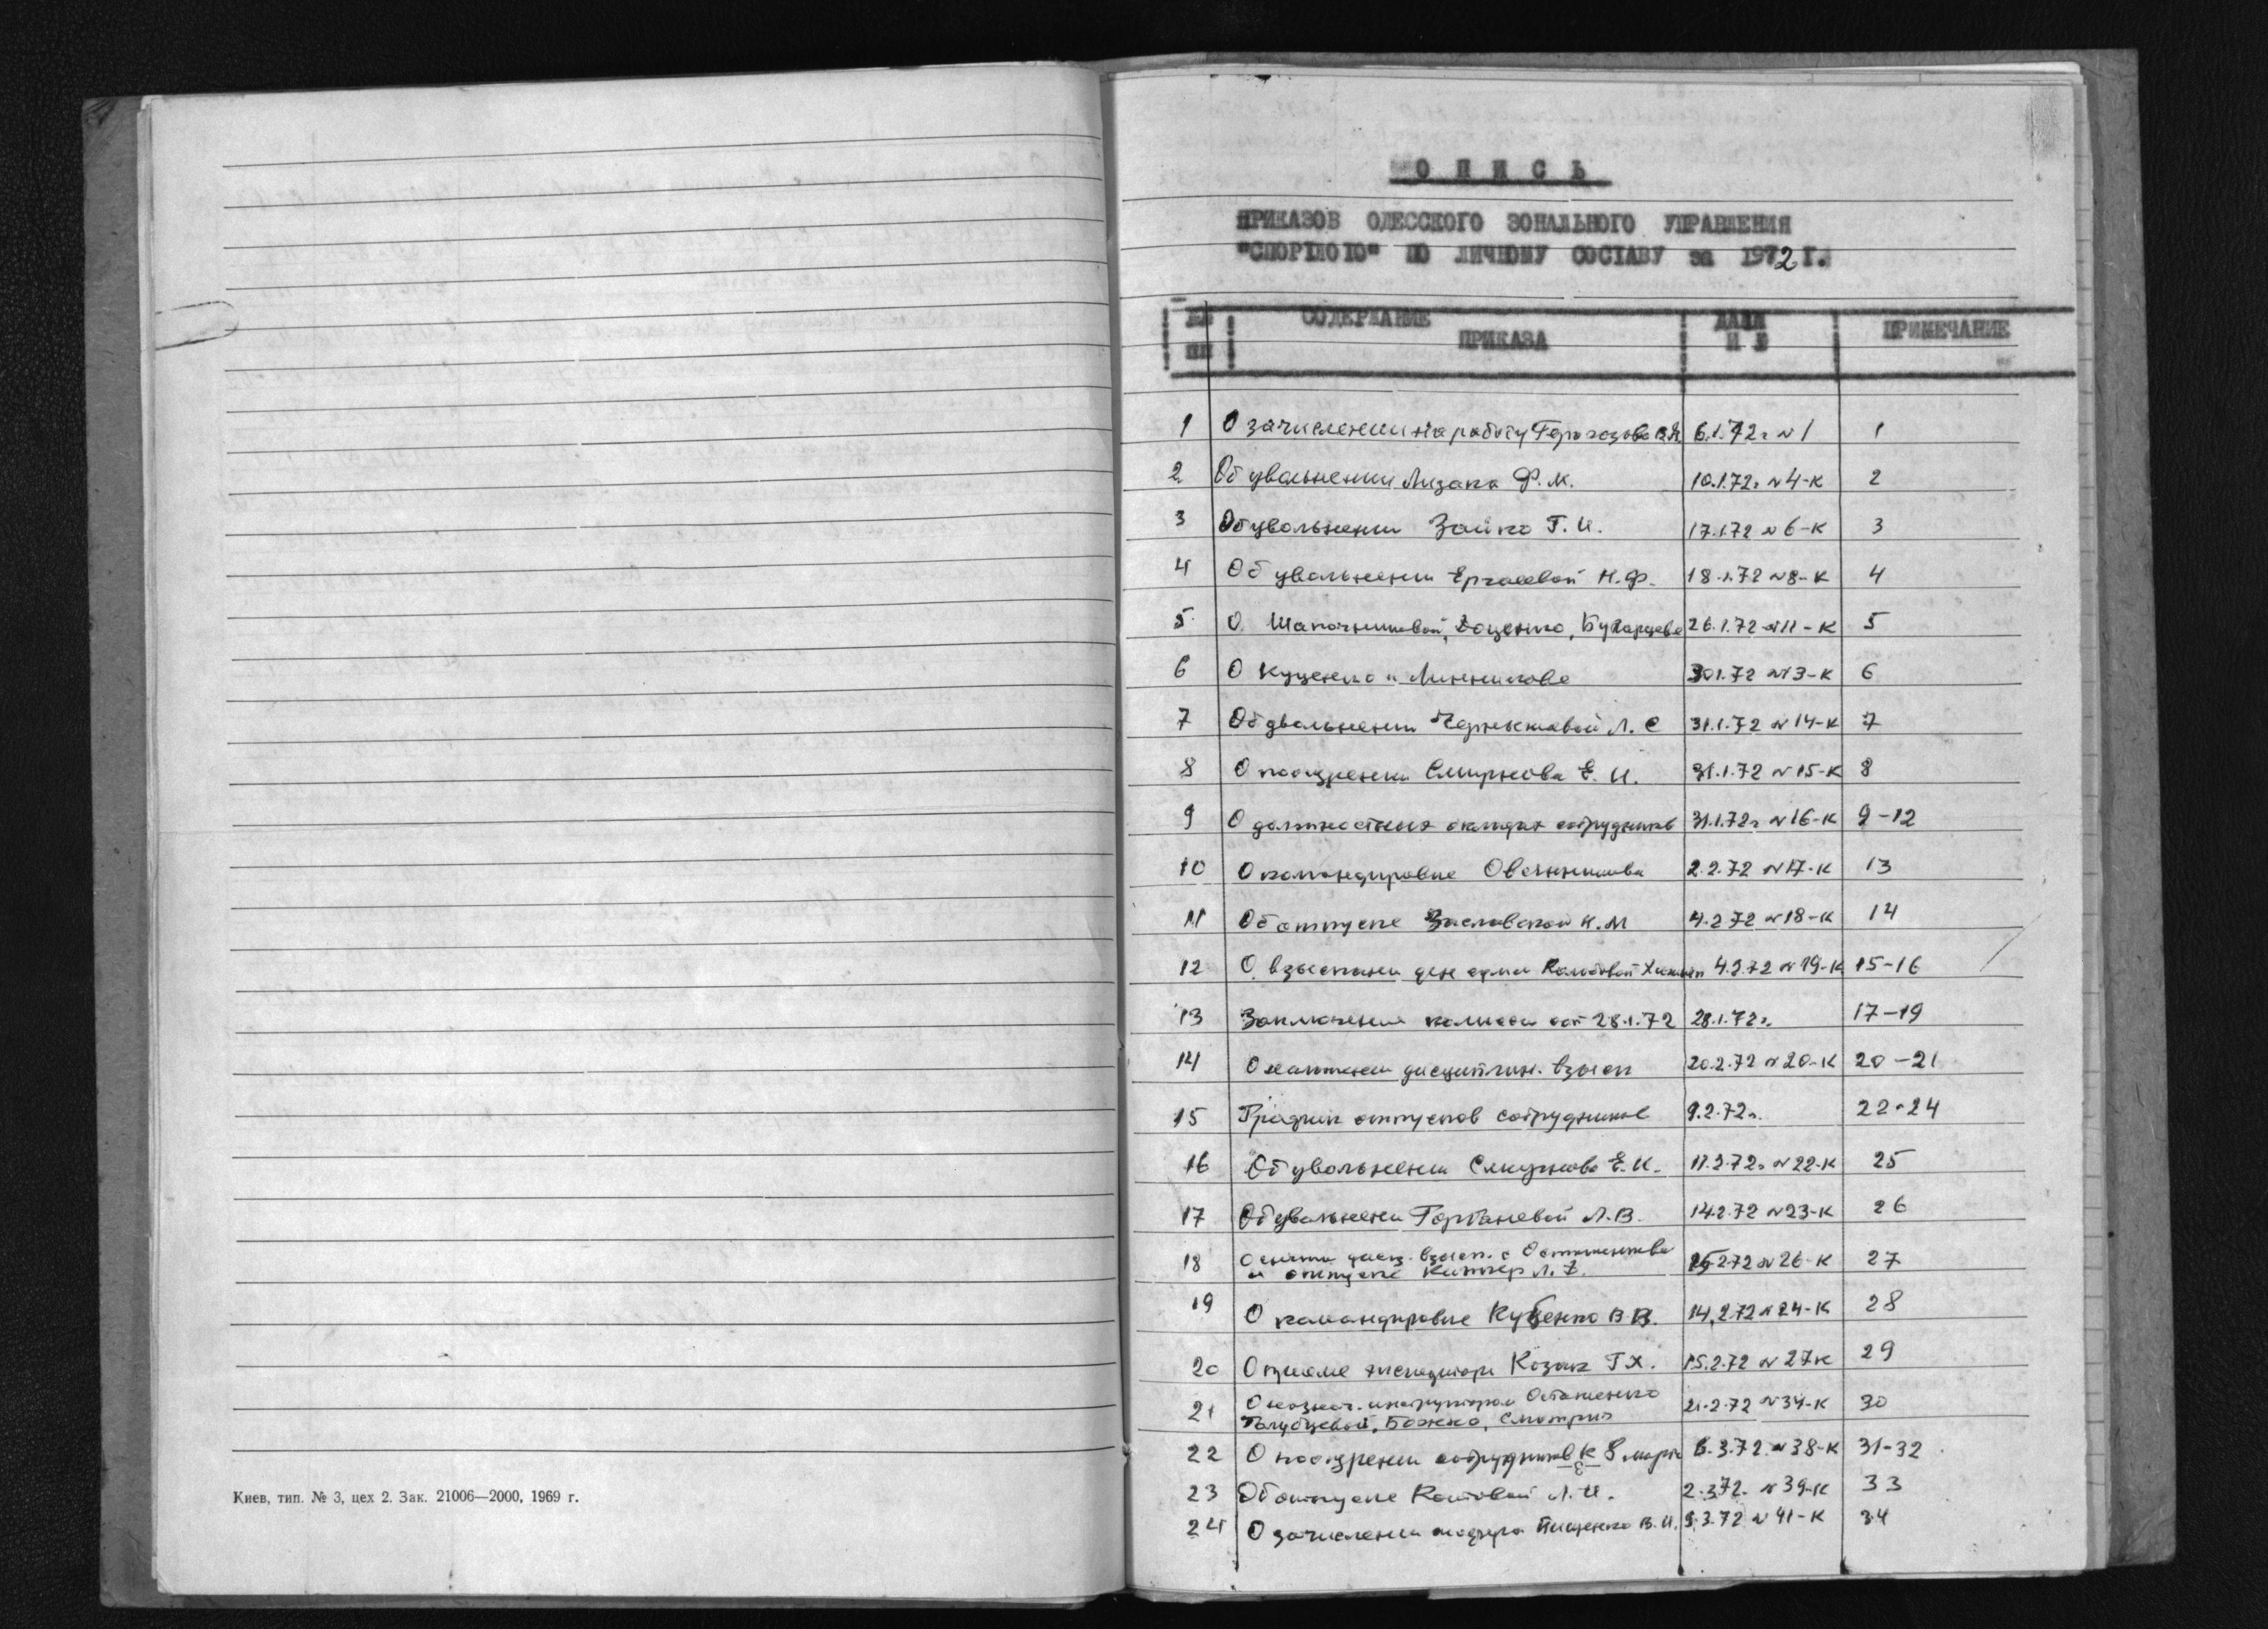 Киев, тип. № 3, цех 2. Зак. 21006—2000, 1969 г.
ОПИСЬ
ПРИКАЗОВ ОДЕССКОГО ЗОНАЛЬНОГО УПРАВЛЕНИЯ
"СПОРТЛОТО" ПО ЛИЧНОМУ СОСТАВУ за 1972 г.
№№ СОДЕРЖАНИЕ ДАТА ПРИМЕЧАНИЕ
пп ПРИКАЗА И №
1 О зачислении на работу 6.1.72г №1 1
2 Об увольнении Лизака Ф.М. 10.1.72г №4-К 2
3 Об увольнении Зайко Г.И. 17.1.72 №6-К 3
4 Об увольнении Н.Ф. 18.1.72 №8-К 4
5 О Шапочниковой, Доценко, 26.1.72 №11-К 5
6 О Куценко и Линникове 30.1.72 №13-К 6
7 Об увольнении Л.С 31.1.72 №14-К 7
8 О поощрении Смирнова Е.И. 31.1.72 №15-К 8
9 О должностных окладах сотрудников 31.1.72г №16-К 9-12
10 О командировке Овчинникова 2.2.72 №17-К 13
11 Об отпуске Заславской Н.М 4.2.72 №18-К 14
12 О взыскании ден сумм 4.2.72 №19-К 15-16
13 Заключение комисси от 28.1.72 28.1.72г. 17-19
14 О наложении дисциплин. взыск 20.2.72 №20-К 20-21
15 График отпусков сотрудников 9.2.72г. 22-24
16 Об увольнении Смирнова Е.И. 11.2.72г №22-К 25
17 Об увольнении Л.В. 14.2.72 №23-К 26
18 О снятии дисц. взыск. с
и отпуске 15.2.72 №26-К 27
19 О командировке Куценко В.В. 14.2.72 №24-К 28
20 О приеме экспедитора Козак Г.Х. 15.2.72 №27к 29
21 О назнач. инструктором Осташенко
Голубцевой, Божко, 21.2.72 №34-К 30
22 О поощрении сотрудников к 8 марта 6.3.72 №38-К 31-32
23 Об отпуске Котовой Л.И. 2.3.72. №39-К 33
24 О зачислении Пищенко В.И. 9.3.72 №41-К 34